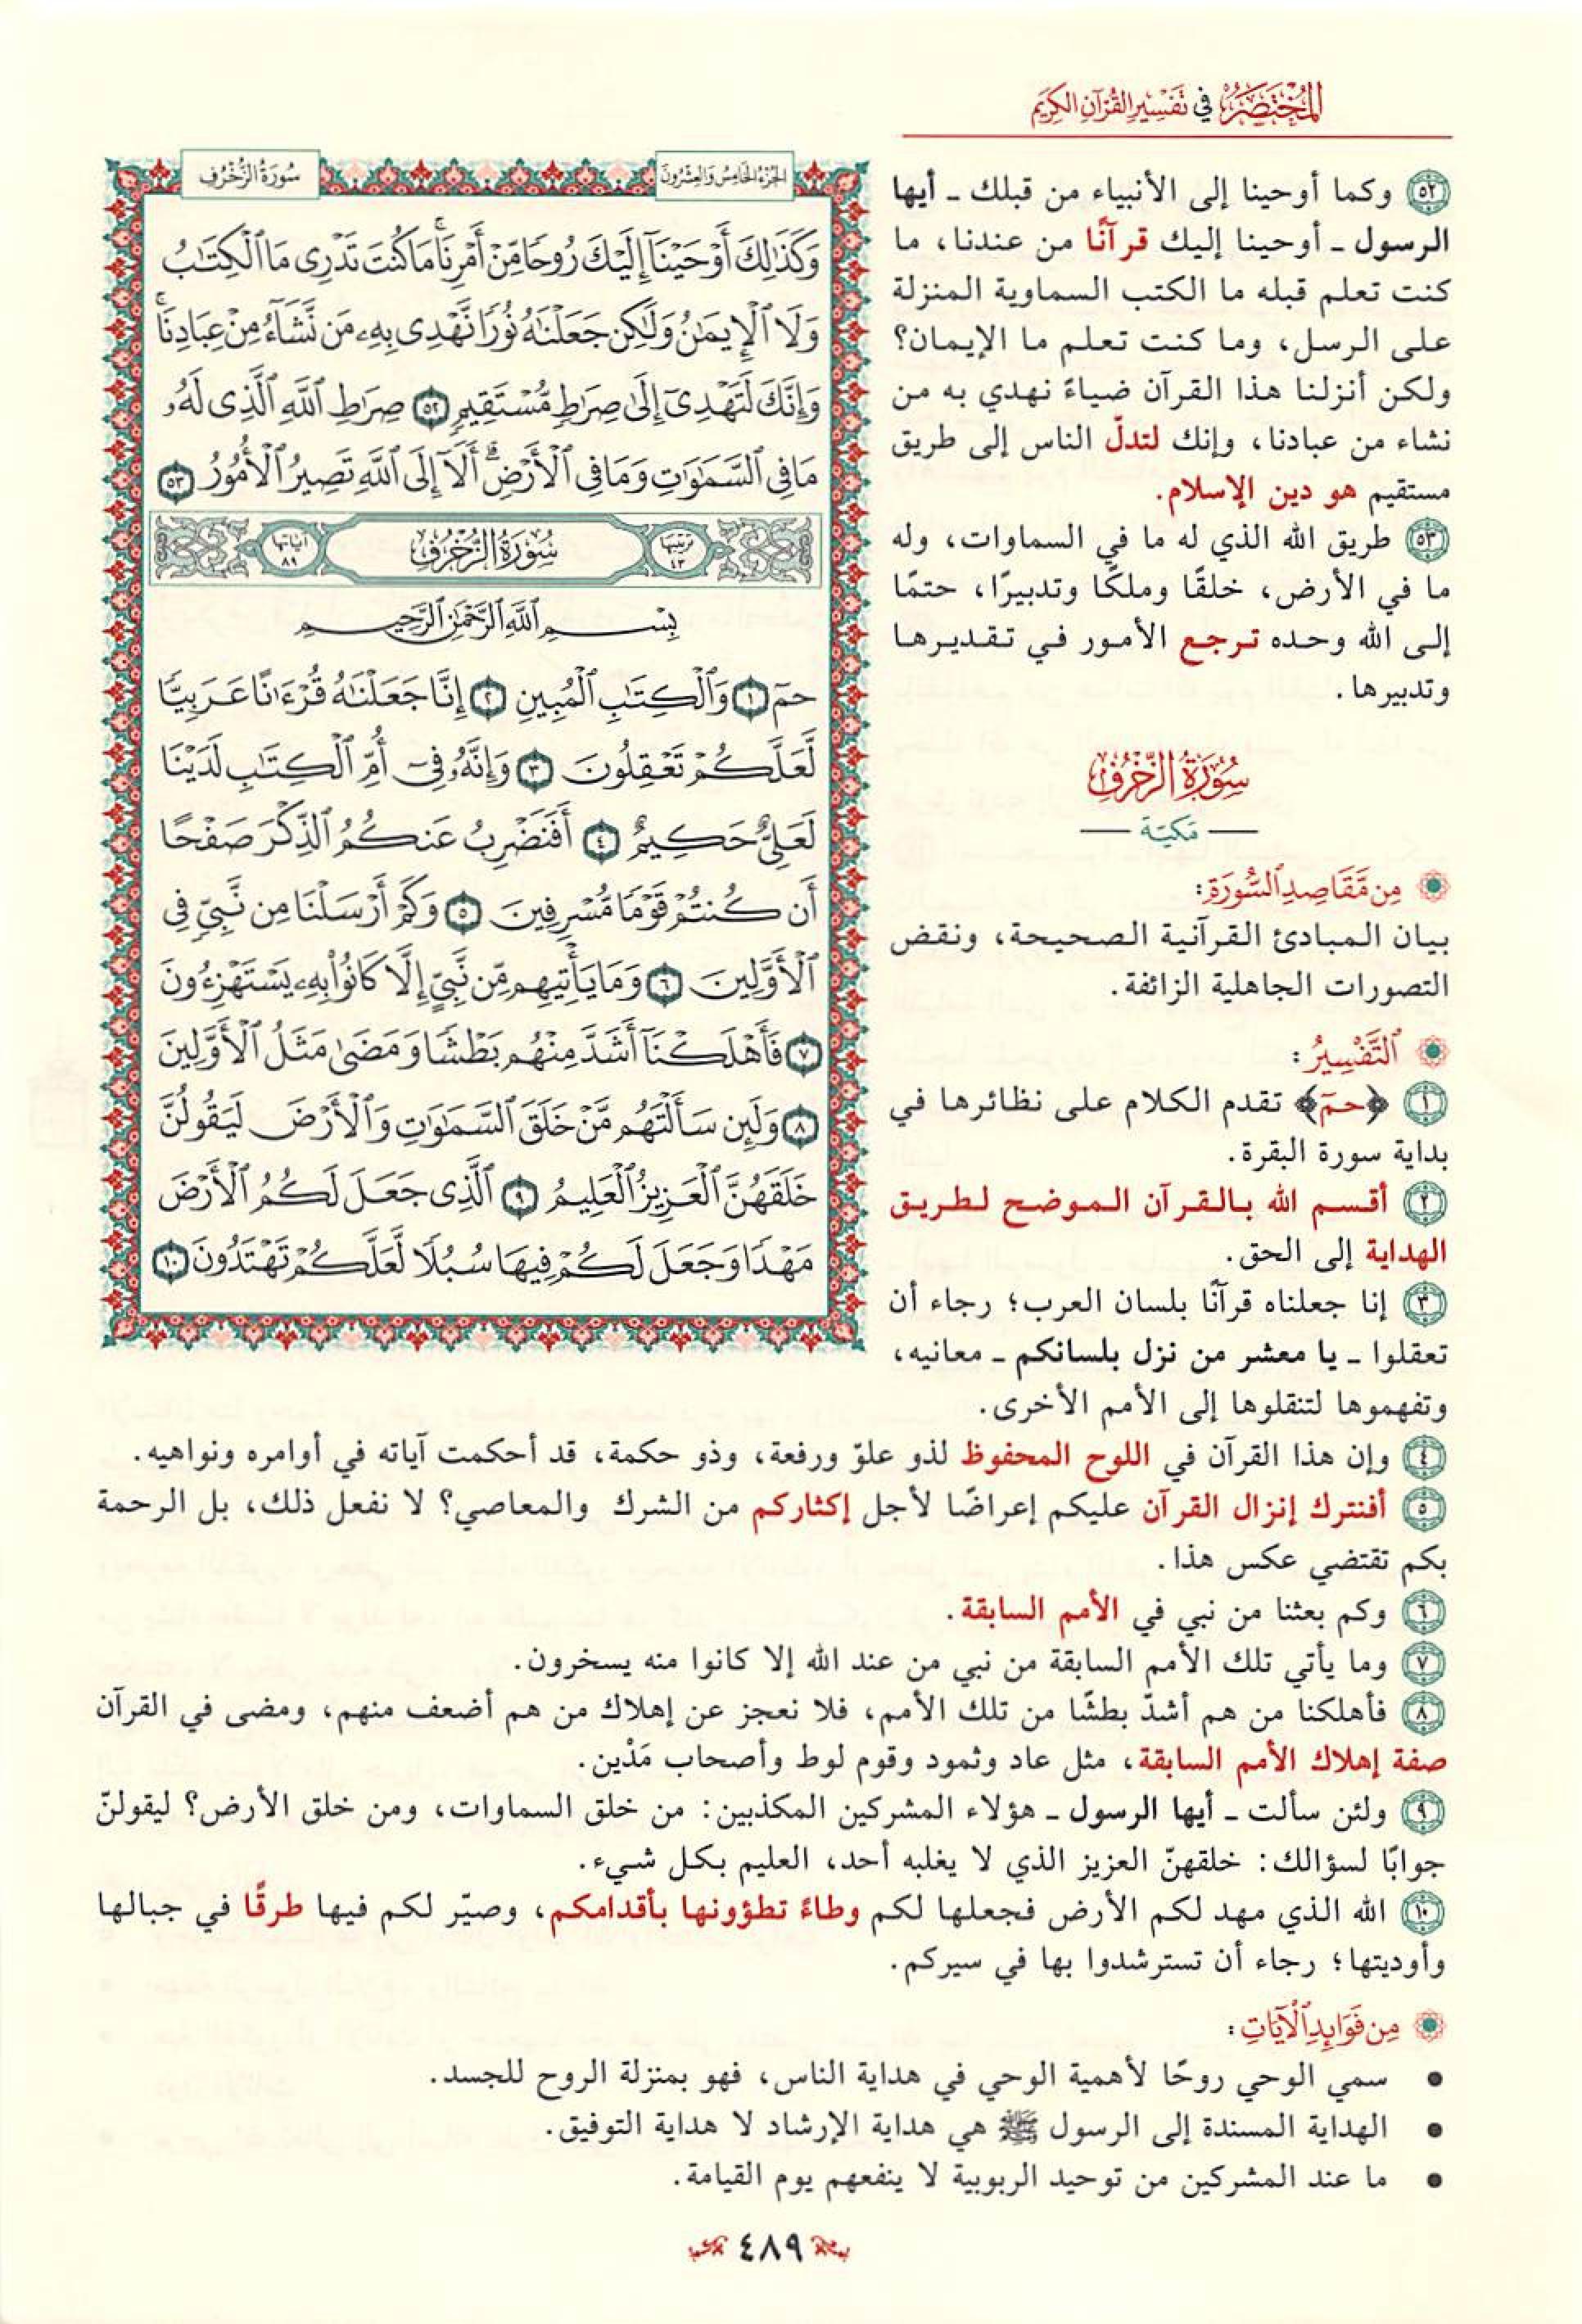 المختصر في تفسير القرآن الكريم
الجزء الخامس والعشرون
سورة الزخرف
وَكَذَٰلِكَ أَوْحَيْنَآ إِلَيْكَ رُوحًا مِّنْ أَمْرِنَا ۚ مَا كُنتَ تَدْرِى مَا ٱلْكِتَٰبُ
وَلَا ٱلْإِيمَٰنُ وَلَٰكِن جَعَلْنَٰهُ نُورًا نَّهْدِى بِهِۦ مَن نَّشَآءُ مِنْ عِبَادِنَا ۚ
وَإِنَّكَ لَتَهْدِىٓ إِلَىٰ صِرَٰطٍ مُّسْتَقِيمٍ ٥٢ صِرَٰطِ ٱللَّهِ ٱلَّذِى لَهُۥ
مَا فِى ٱلسَّمَٰوَٰتِ وَمَا فِى ٱلْأَرْضِ ۗ أَلَآ إِلَى ٱللَّهِ تَصِيرُ ٱلْأُمُورُ ٥٣
ترتيبها ٤٣ سُورَةُ الزُّخْرُفِ آياتها ٨٩
بِسْمِ ٱللَّهِ ٱلرَّحْمَٰنِ ٱلرَّحِيمِ
حمٓ ١ وَٱلْكِتَٰبِ ٱلْمُبِينِ ٢ إِنَّا جَعَلْنَٰهُ قُرْءَٰنًا عَرَبِيًّا
لَّعَلَّكُمْ تَعْقِلُونَ ٣ وَإِنَّهُۥ فِىٓ أُمِّ ٱلْكِتَٰبِ لَدَيْنَا
لَعَلِىٌّ حَكِيمٌ ٤ أَفَنَضْرِبُ عَنكُمُ ٱلذِّكْرَ صَفْحًا
أَن كُنتُمْ قَوْمًا مُّسْرِفِينَ ٥ وَكَمْ أَرْسَلْنَا مِن نَّبِىٍّ فِى
ٱلْأَوَّلِينَ ٦ وَمَا يَأْتِيهِم مِّن نَّبِىٍّ إِلَّا كَانُوا۟ بِهِۦ يَسْتَهْزِءُونَ
٧ فَأَهْلَكْنَآ أَشَدَّ مِنْهُم بَطْشًا وَمَضَىٰ مَثَلُ ٱلْأَوَّلِينَ
٨ وَلَئِن سَأَلْتَهُم مَّنْ خَلَقَ ٱلسَّمَٰوَٰتِ وَٱلْأَرْضَ لَيَقُولُنَّ
خَلَقَهُنَّ ٱلْعَزِيزُ ٱلْعَلِيمُ ٩ ٱلَّذِى جَعَلَ لَكُمُ ٱلْأَرْضَ
مَهْدًا وَجَعَلَ لَكُمْ فِيهَا سُبُلًا لَّعَلَّكُمْ تَهْتَدُونَ ١٠
٥٢ وكما أوحينا إلى الأنبياء من قبلك ـ أيها
الرسول ـ أوحينا إليك قرآنًا من عندنا، ما
كنت تعلم قبله ما الكتب السماوية المنزلة
على الرسل، وما كنت تعلم ما الإيمان؟
ولكن أنزلنا هذا القرآن ضياءً نهدي به من
نشاء من عبادنا، وإنك لتدلّ الناس إلى طريق
مستقيم هو دين الإسلام.
٥٣ طريق الله الذي له ما في السماوات، وله
ما في الأرض، خلقًا وملكًا وتدبيرًا، حتمًا
إلى الله وحده ترجع الأمور في تقديرها
وتدبيرها.
سُورَةُ الزُّخْرُفِ
— مكيّة —
من مقاصد السورة:
بيان المبادئ القرآنية الصحيحة، ونقض
التصورات الجاهلية الزائفة.
التفسير:
١ ﴿حمٓ﴾ تقدم الكلام على نظائرها في
بداية سورة البقرة.
٢ أقسم الله بالقرآن الموضح لطريق
الهداية إلى الحق.
٣ إنا جعلناه قرآنًا بلسان العرب؛ رجاء أن
تعقلوا ـ يا معشر من نزل بلسانكم ـ معانيه،
وتفهموها لتنقلوها إلى الأمم الأخرى.
٤ وإن هذا القرآن في اللوح المحفوظ لذو علوّ ورفعة، وذو حكمة، قد أحكمت آياته في أوامره ونواهيه.
٥ أفنترك إنزال القرآن عليكم إعراضًا لأجل إكثاركم من الشرك والمعاصي؟ لا نفعل ذلك، بل الرحمة
بكم تقتضي عكس هذا.
٦ وكم بعثنا من نبي في الأمم السابقة.
٧ وما يأتي تلك الأمم السابقة من نبي من عند الله إلا كانوا منه يسخرون.
٨ فأهلكنا من هم أشدّ بطشًا من تلك الأمم، فلا نعجز عن إهلاك من هم أضعف منهم، ومضى في القرآن
صفة إهلاك الأمم السابقة، مثل عاد وثمود وقوم لوط وأصحاب مَدْين.
٩ ولئن سألت ـ أيها الرسول ـ هؤلاء المشركين المكذبين: من خلق السماوات، ومن خلق الأرض؟ ليقولنّ
جوابًا لسؤالك: خلقهنّ العزيز الذي لا يغلبه أحد، العليم بكل شيء.
١٠ الله الذي مهد لكم الأرض فجعلها لكم وطاءً تطؤونها بأقدامكم، وصيّر لكم فيها طرقًا في جبالها
وأوديتها؛ رجاء أن تسترشدوا بها في سيركم.
من فوائد الآيات:
• سمي الوحي روحًا لأهمية الوحي في هداية الناس، فهو بمنزلة الروح للجسد.
• الهداية المسندة إلى الرسول ﷺ هي هداية الإرشاد لا هداية التوفيق.
• ما عند المشركين من توحيد الربوبية لا ينفعهم يوم القيامة.
٤٨٩